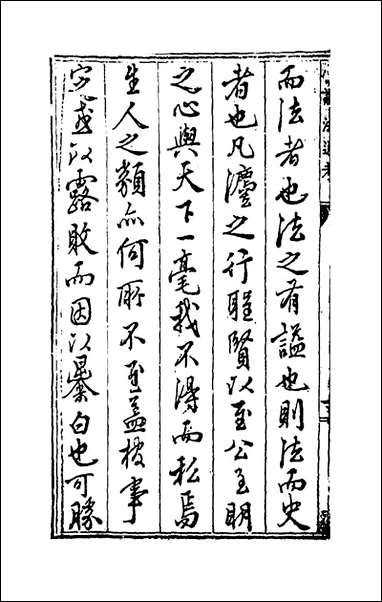 諡法通考
而法者也法之有諡也則法而史
者也凡灋之行聖賢以至公至明
之心與天下一毫我不得而私焉
生人之類亦何所不至蓋棺事
定或以露敗而因以暴白也可勝